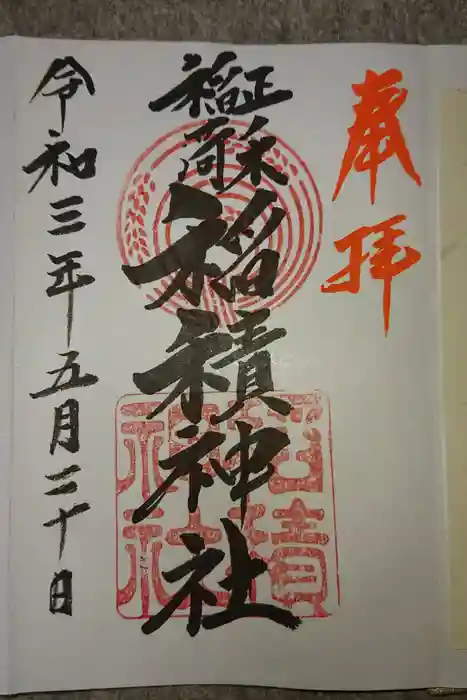 奉拝
正ノ木
稲荷
稲積神社
稲積
神社
令和三年五月二十日